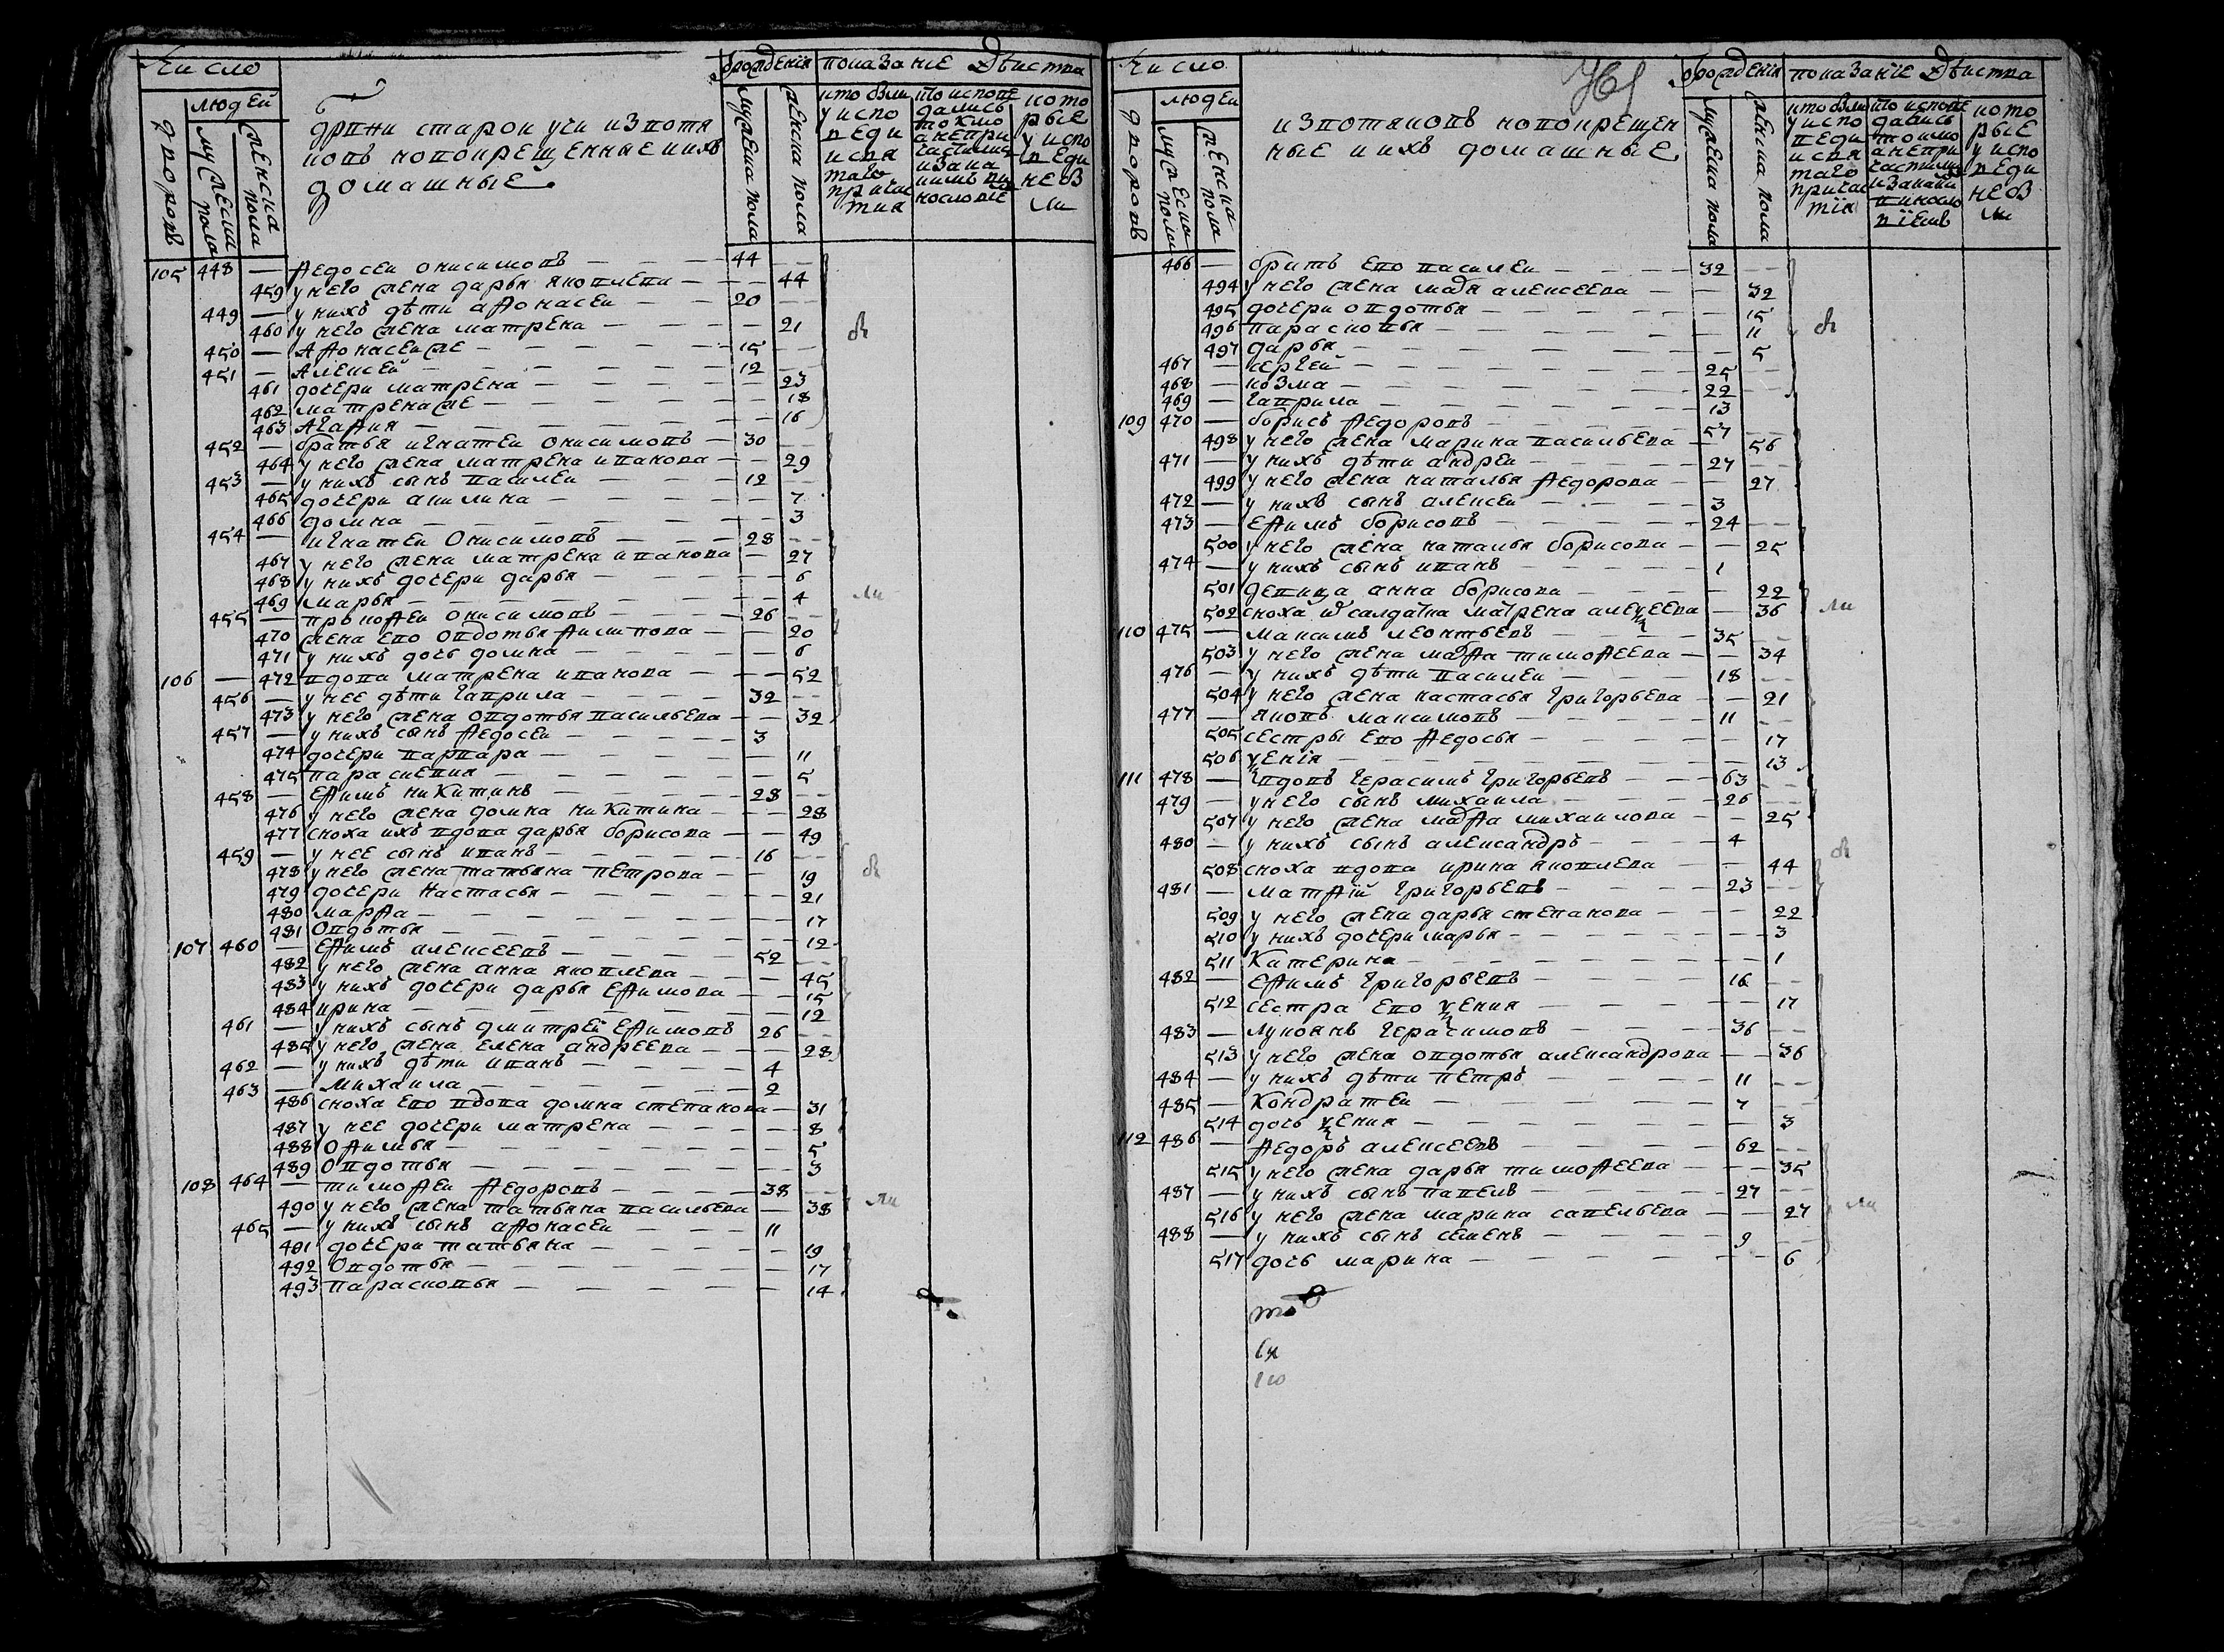 Число
людей
дворовъ
мужеска пола
женска пола
дрвни старои учи извотя
ковъ новокрещенные ихъ
домашные
от рождения
мужеска пола
женска пола
показание действа
которые у исповеди не бы ли
105 448 — Ѳедосеи Онисимовъ — 44
459 у него жена дарья яковлева — 44
449 — у нихъ дѣти аѲонасеи — 20
460 у него жена матрена — 21
450 — АѲонасеи же — 15
451 — Алексей — 12
461 дочери матрена — 23
462 матрена же — 18
463 АгаѲия — 16
452 — братья игнатеи Онисимовъ — 30
464 у него жена матрена иванова — 29
453 — у нихъ сынъ василеи — 12
465 дочери акилина — 7
466 домна — 3
454 — игнатеи Онисимовъ — 28
467 у него жена матрена иванова — 27
468 у нихъ дочери дарья — 6
469 марья — 4
455 — прокоѲеи онисимовъ — 26
470 жена ево овдотья Ѳилипова — 20
471 у нихъ дочь домна — 6
106 — 472 вдова матрена иванова — 52
456 — у нее дѣти гаврила — 32
473 у него жена овдотья васильева — 32
457 — у нихъ сынъ Ѳедосеи — 3
474 дочери варвара — 11
475 параскевия — 5
458 — ЕѲимъ никитинъ — 28
476 у него жена домна никитина — 28
477 сноха ихъ вдова дарья борисова — 49
459 — у нее сынъ иванъ — 16
478 у него жена татьяна петрова — 19
479 дочери настасья — 21
480 марѲа — 17
481 Овдотья — 12
107 460 — ЕѲимъ алексеевъ — 52
482 у него жена анна яковлева — 45
483 у нихъ дочери дарья ЕѲимова — 15
484 ирина — 12
461 — у нихъ сынъ дмитрей ЕѲимовъ 26
485 у него жена елена андреева — 28
462 — у нихъ дѣти иванъ — 4
463 — михаила — 2
486 сноха ево вдова домна степанова — 31
487 у нее дочери матрена — 8
488 ОѲимья — 5
489 Овдотья — 3
108 464 — тимоѲеи Ѳедоровъ — 38
490 у него жена татьяна васильева — 38
465 — у нихъ сынъ аѲонасеи — 11
491 дочери татьяна — 19
492 Овдотья — 17
493 парасковья — 14
бы
ли
бы
ли
Число
людеи
дворовъ
мужеска пола
женска пола
извотяковъ новокрещен
ные ихъ домашные
от рождения
мужеска пола
женска пола
показание действа
которые у исповеди не бы ли
466 — братъ ево василеи — 32
494 у него жена марѲа алексеева — 32
495 дочери овдотья — 15
496 парасковья — 11
497 дарья — 5
467 — сергей — 25
468 — козма — 22
469 — гаврила — 13
109 470 — борисъ Ѳедоровъ — 57
498 у него жена марина васильева — 56
471 — у нихъ дѣти андреи — 27
499 у него жена наталья Ѳедорова — 27
472 — у нихъ сынъ алексеи — 3
473 — ЕѲимъ борисовъ — 24
500 у него жена наталья борисова — 25
474 — у нихъ сынъ иванъ — 1
501 девица анна борисова — 22
502 сноха ѿ салдатка матрена алеѯеева — 36
110 475 — Максимъ леонтьевъ — 35
503 у него жена марѲа тимоѲеева — 34
476 — у нихъ дѣти василеи — 18
504 у него жена настасья григорьева — 21
477 — яковъ максимовъ — 11
505 сестры ево Ѳедосья — 17
506 ѯения — 13
111 478 — вдовъ герасимъ григорьевъ — 63
479 — у него сынъ михаила — 26
507 у него жена марѲа михаилова — 25
480 — у нихъ сынъ александръ — 4
508 сноха вдова ирина яковлева — 44
481 — МатѲїй григорьевъ — 23
509 у него жена дарья степанова — 22
510 у нихъ дочери марья — 3
511 Катерина — 1
482 — ЕѲимъ григорьевъ — 16
512 сестра ево ѯения — 17
483 — лукоянъ герасимовъ — 36
513 у него жена овдотья александрова — 36
484 — у нихъ дѣти петръ — 11
485 — Кондратеи — 7
514 дочь ѯения — 3
112 486 — Ѳедоръ алексеевъ — 62
515 у него жена дарья тимоѲеева — 35
487 — у нихъ сынъ павелъ — 27
516 у него жена марина савельева — 27
488 — у нихъ сынъ семенъ — 9
517 дочь марина — 6
бы
ли
бы
ли